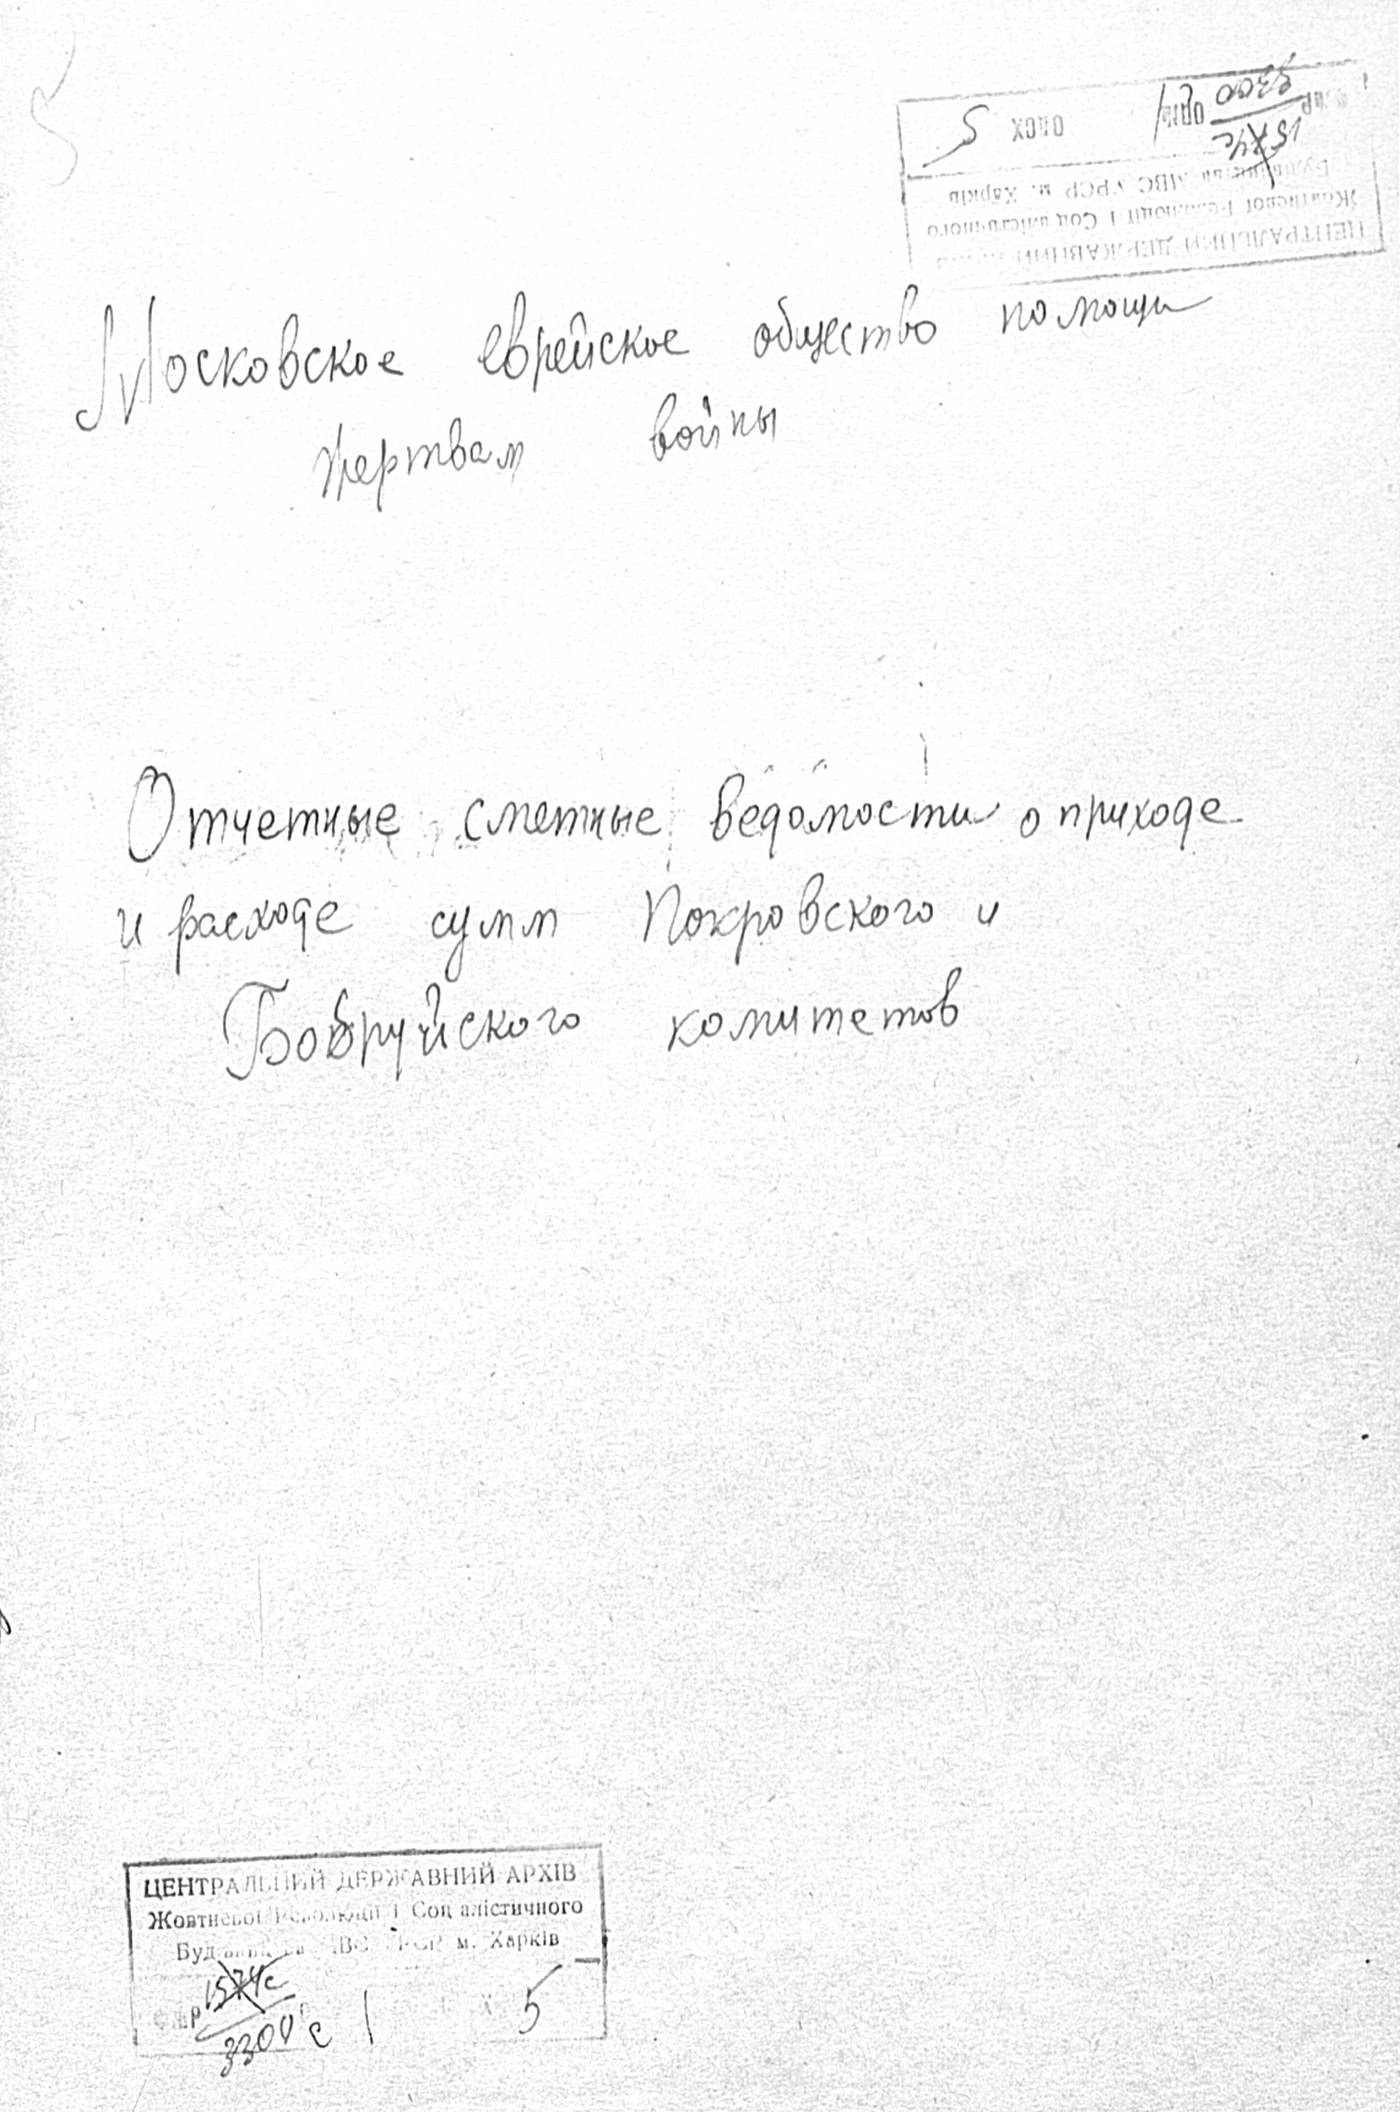 5
Московское еврейское общество помощи
жертвам войны
Отчетные сметные ведомости о приходе
и расходе сумм Покровского и
Бобруйского комитетов
ЦЕНТРАЛЬНИЙ ДЕРЖАВНИЙ АРХІВ
Жовтневої Революції і Соціалістичного
Будівництва МВС УРСР м. Харків
ОПИС 1 ОДЗХ 5
ЦЕНТРАЛЬНИЙ ДЕРЖАВНИЙ АРХІВ
Жовтневої Революції і Соціалістичного
Будівництва МВС УРСР м. Харків
1574с
3300 с 1 5